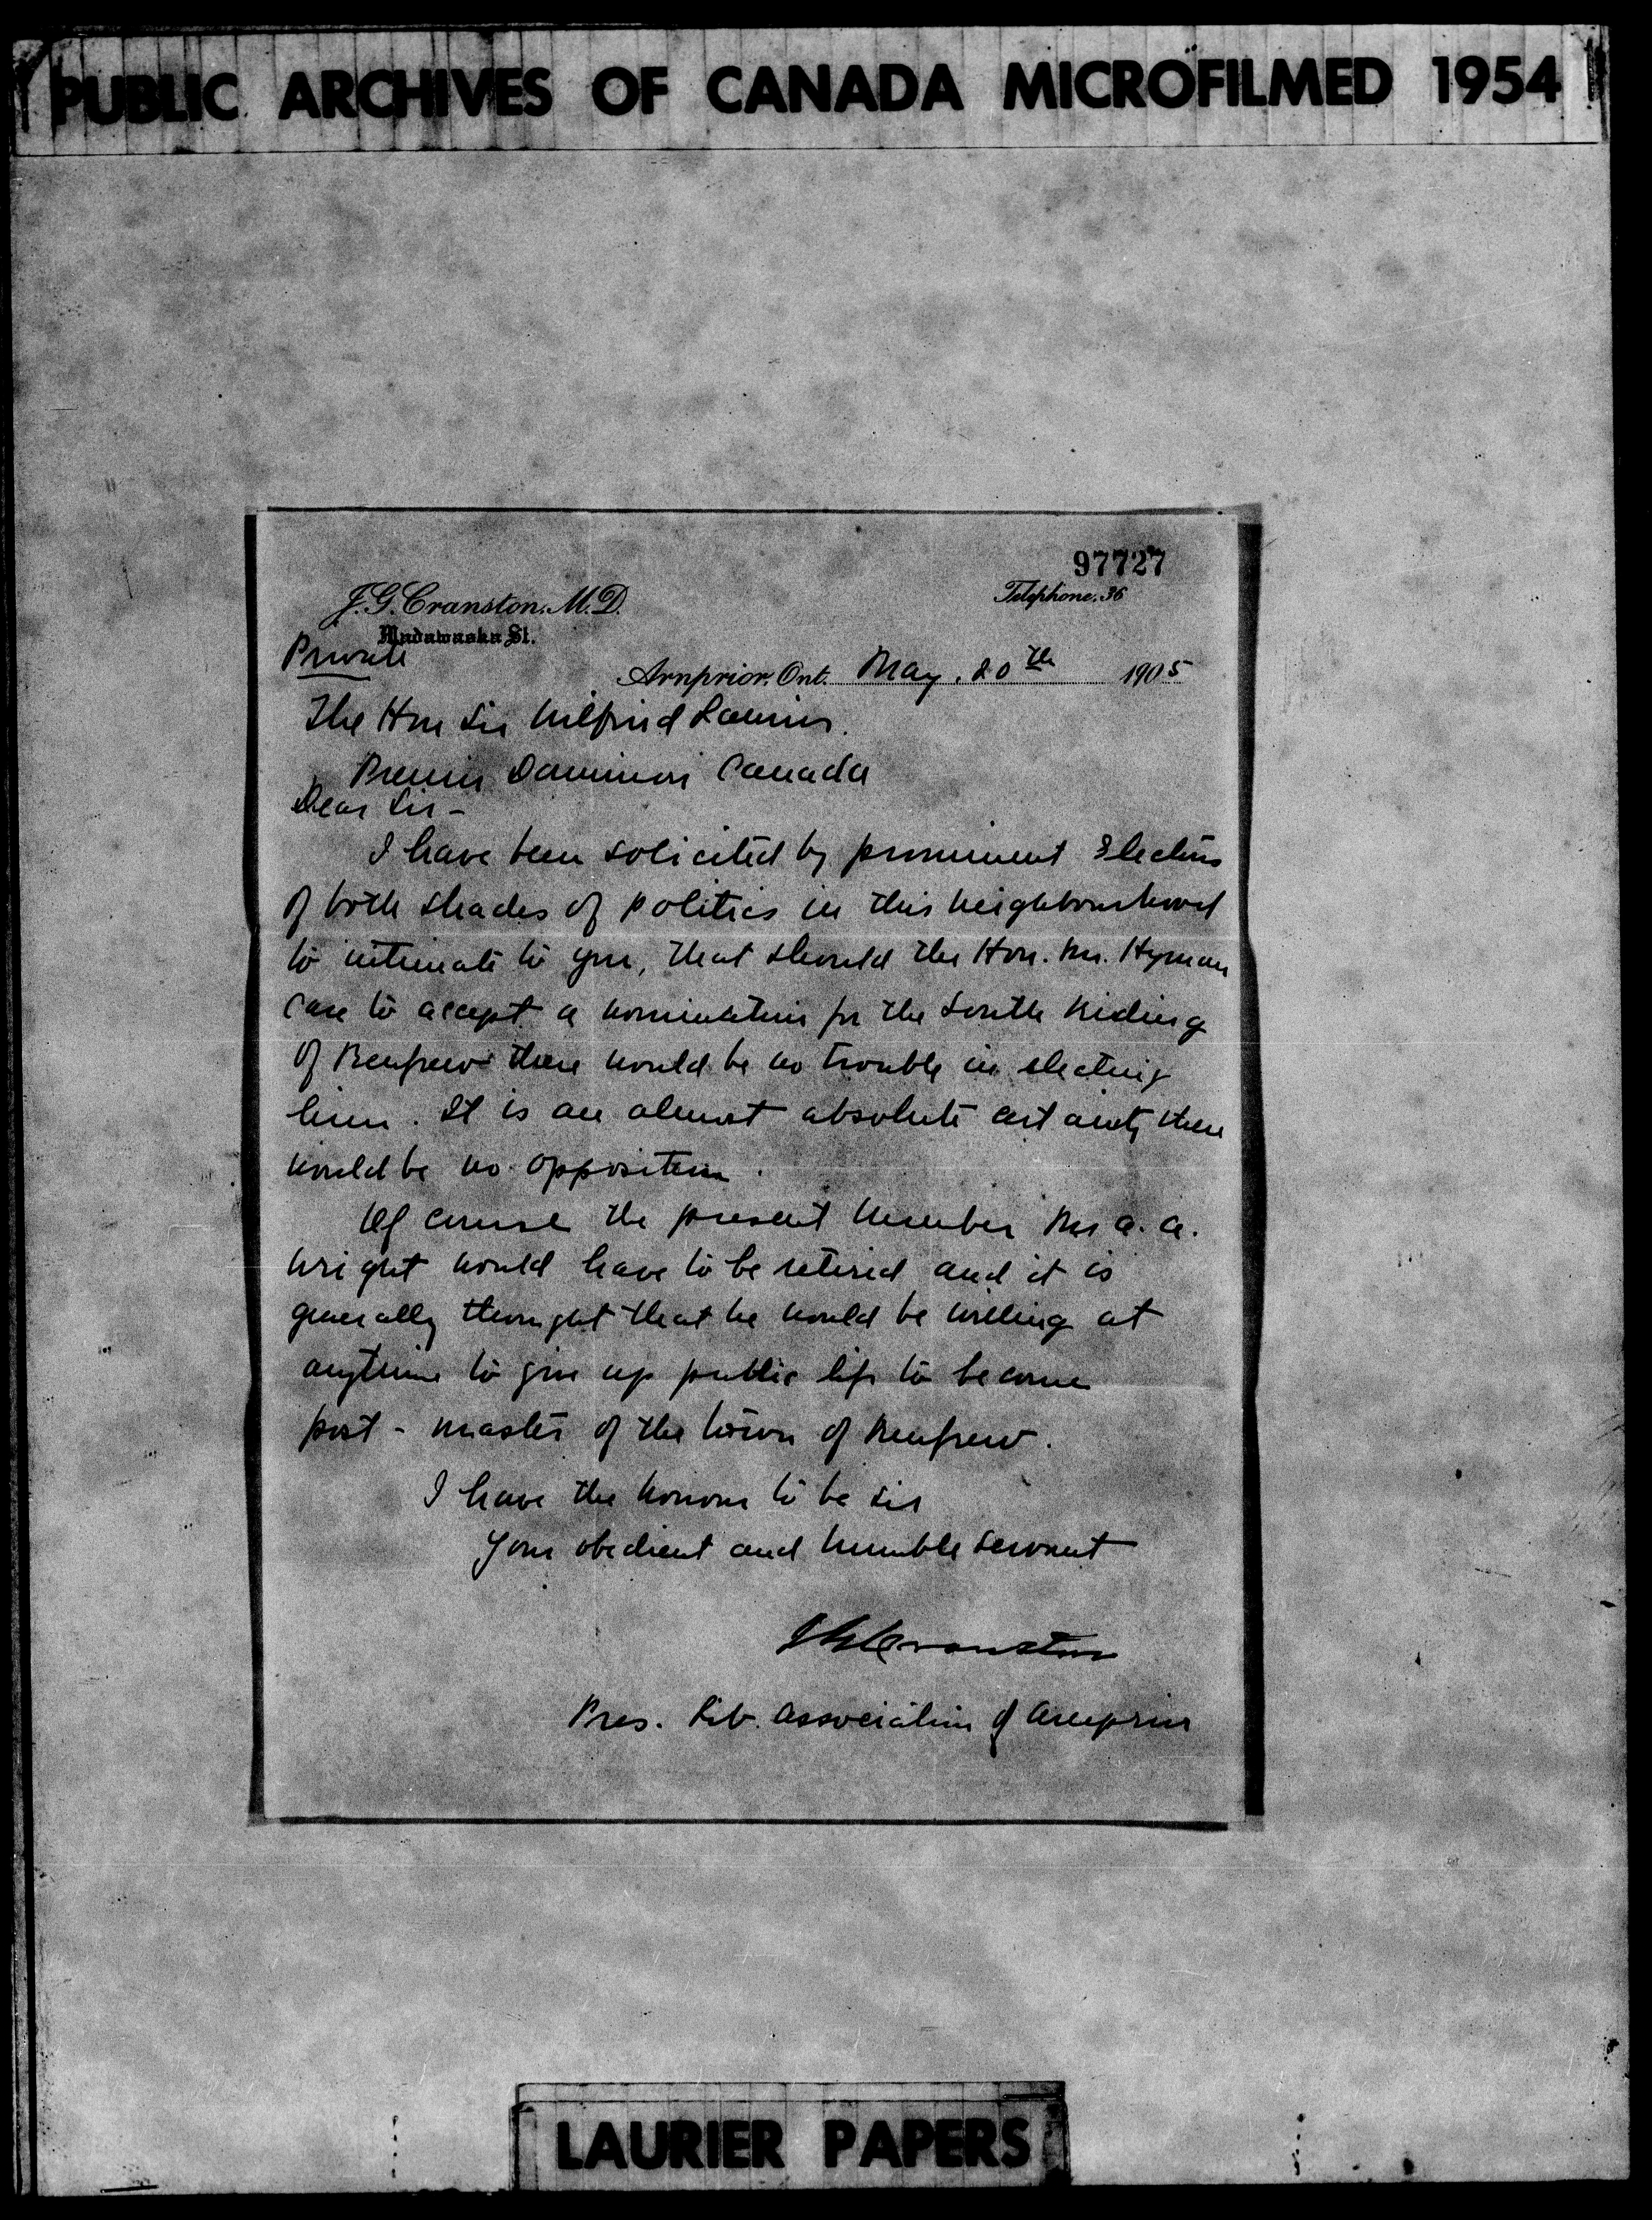 PUBLIC ARCHIVES OF CANADA MICROFILMED 1954
97727
J. G. Cranston, M. D.
Telephone. 36
Madawaska St.
Private
Arnprior, Ont. May. 20th 1905
The Hon Sir Wilfrid Laurier.
Premier Dominion Canada
Dear Sir -
I have been solicited by prominent Electors
of both shades of politics in this neighbourhood
to intimate to you, that should the Hon. Mr. Hyman
care to accept a nomination for the South Riding
of Renfrew there would be no trouble in electing
him. It is an almost absolute certainty there
would be no opposition.
Of course the present member Mr A. A.
Wright would have to be retired and it is
generally thought that he would be willing at
anytime to give up public life to become
post - master of the town of Renfrew.
I have the honour to be Sir
Your obedient and humble servant
J G Cranston
Pres. Lib. Association of Arnprior
LAURIER PAPERS